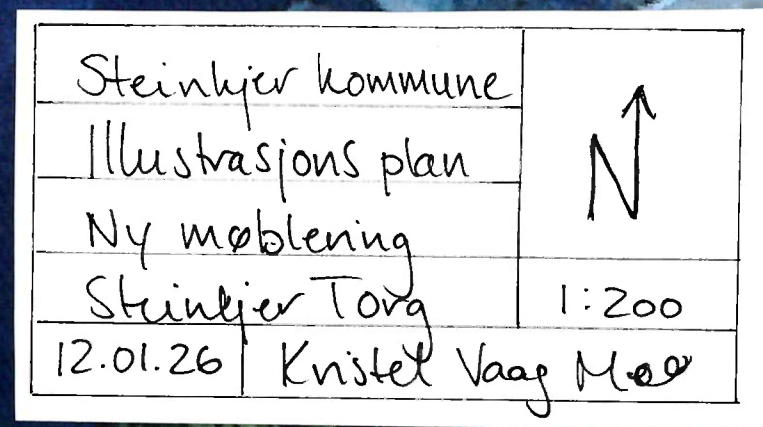 Steinkjer kommune
Illustrasjons plan
Ny møblering
Steinkjer Torg
N
1:200
12.01.26
Kristel Vaag